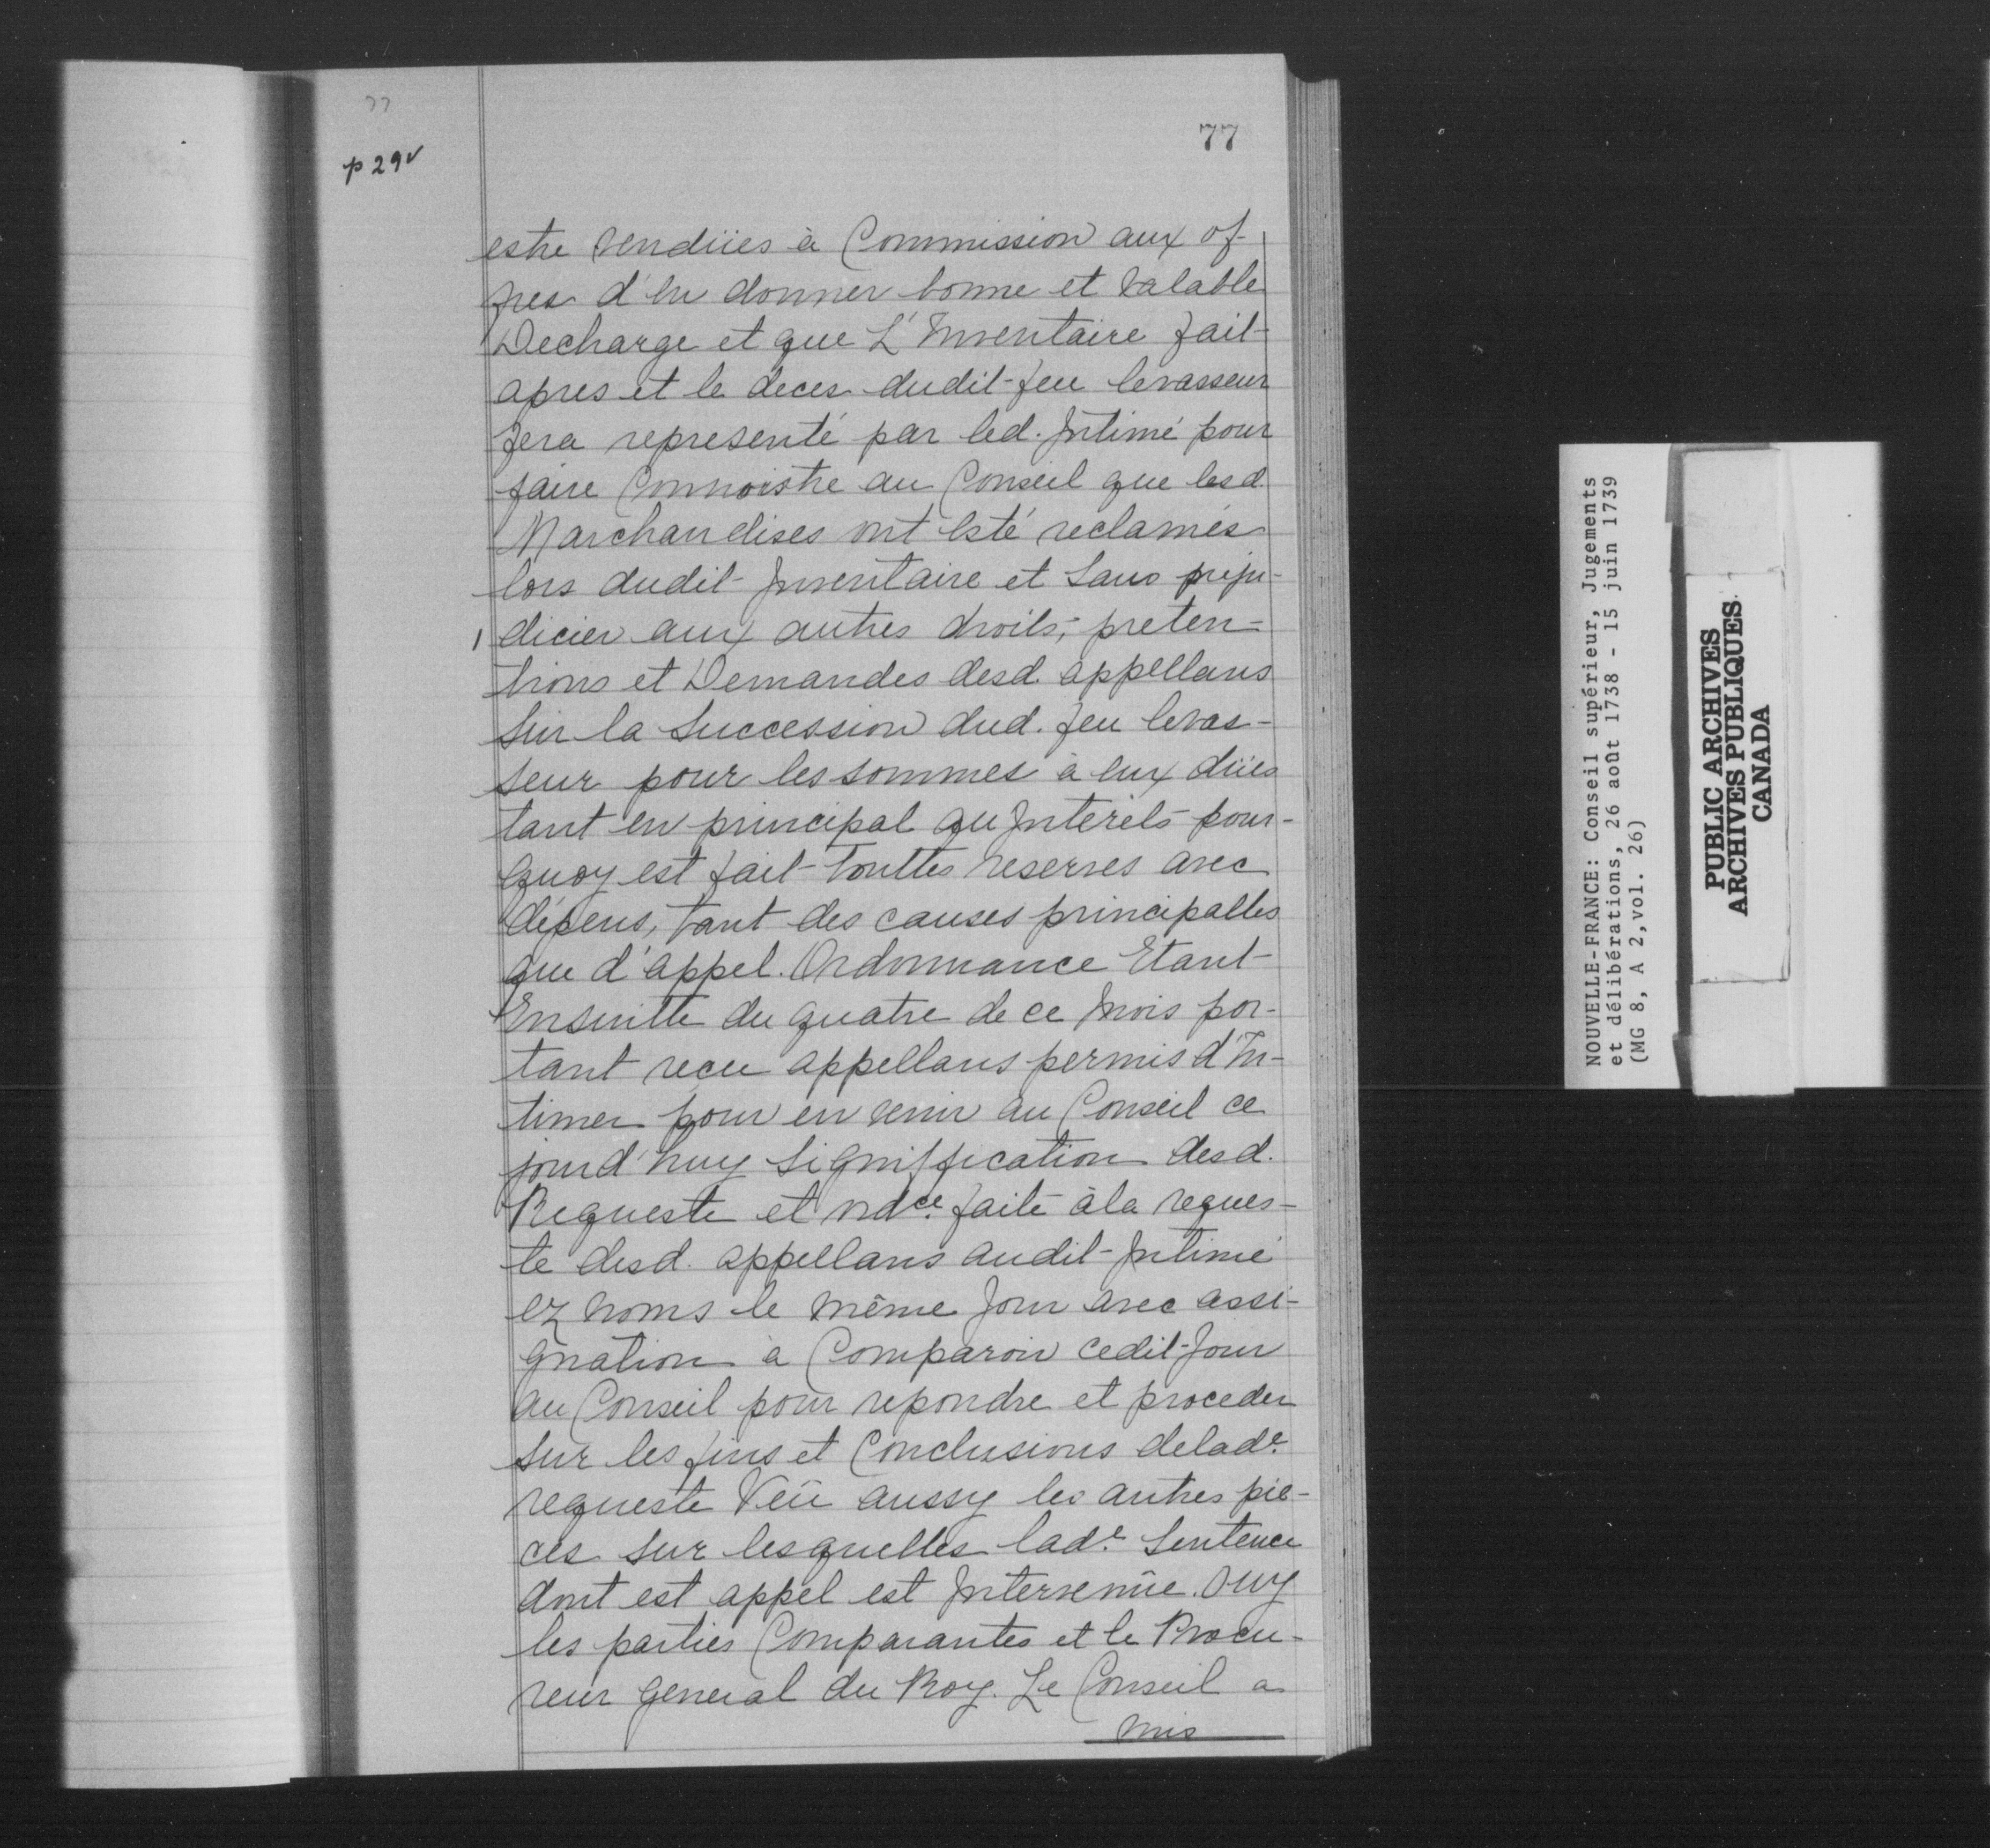 77
77
p 29v
estre vendües à Commission aux of-
fres d'en donner bonne et valable
Decharge et que L'Inventaire fait
apres et le deces dudit feu levasseur
sera representé par led. Intimé pour
faire Connoistre au Conseil que lesd.
Marchandises ont esté reclamés
lors dudit Inventaire et sans preju-
dicier aux autres droits, preten-
tions et Demandes desd. appellans
sur la succession dud. feu levas-
seur pour les sommes à eux dües
tant en principal qu Interêts pour-
quoy est fait touttes reserves avec
dépens, tant des causes principalles
que d'appel. Ordonnance Etant
Ensuitte du quatre de ce mois por-
tant reçu appellans permis d'In-
timer pour en venir au Conseil ce
jourd'huy signiffication desd.
Requeste et ndce. faite à la reques-
te desd. appellans audit Intimé
ez noms le même Jour avec assi-
gnation à Comparoir cedit Jour
au Conseil pour repondre et proceder
sur les fins et Conclusions delade.
requeste Veü aussy les autres pie-
ces sur lesquelles lade. Sentence
dont est appel est Intervenüe. Ouy
les parties Comparantes et le Procu-
reur general du Roy. Le Conseil a
mis
NOUVELLE-FRANCE: Conseil supérieur, Jugements
et délibérations, 26 août 1738 - 15 juin 1739
(MG 8, A 2, vol. 26)
PUBLIC ARCHIVES
ARCHIVES PUBLIQUES
CANADA